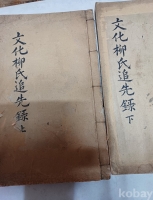 文化柳氏追先錄 上
文化柳氏追先錄 下
kobay